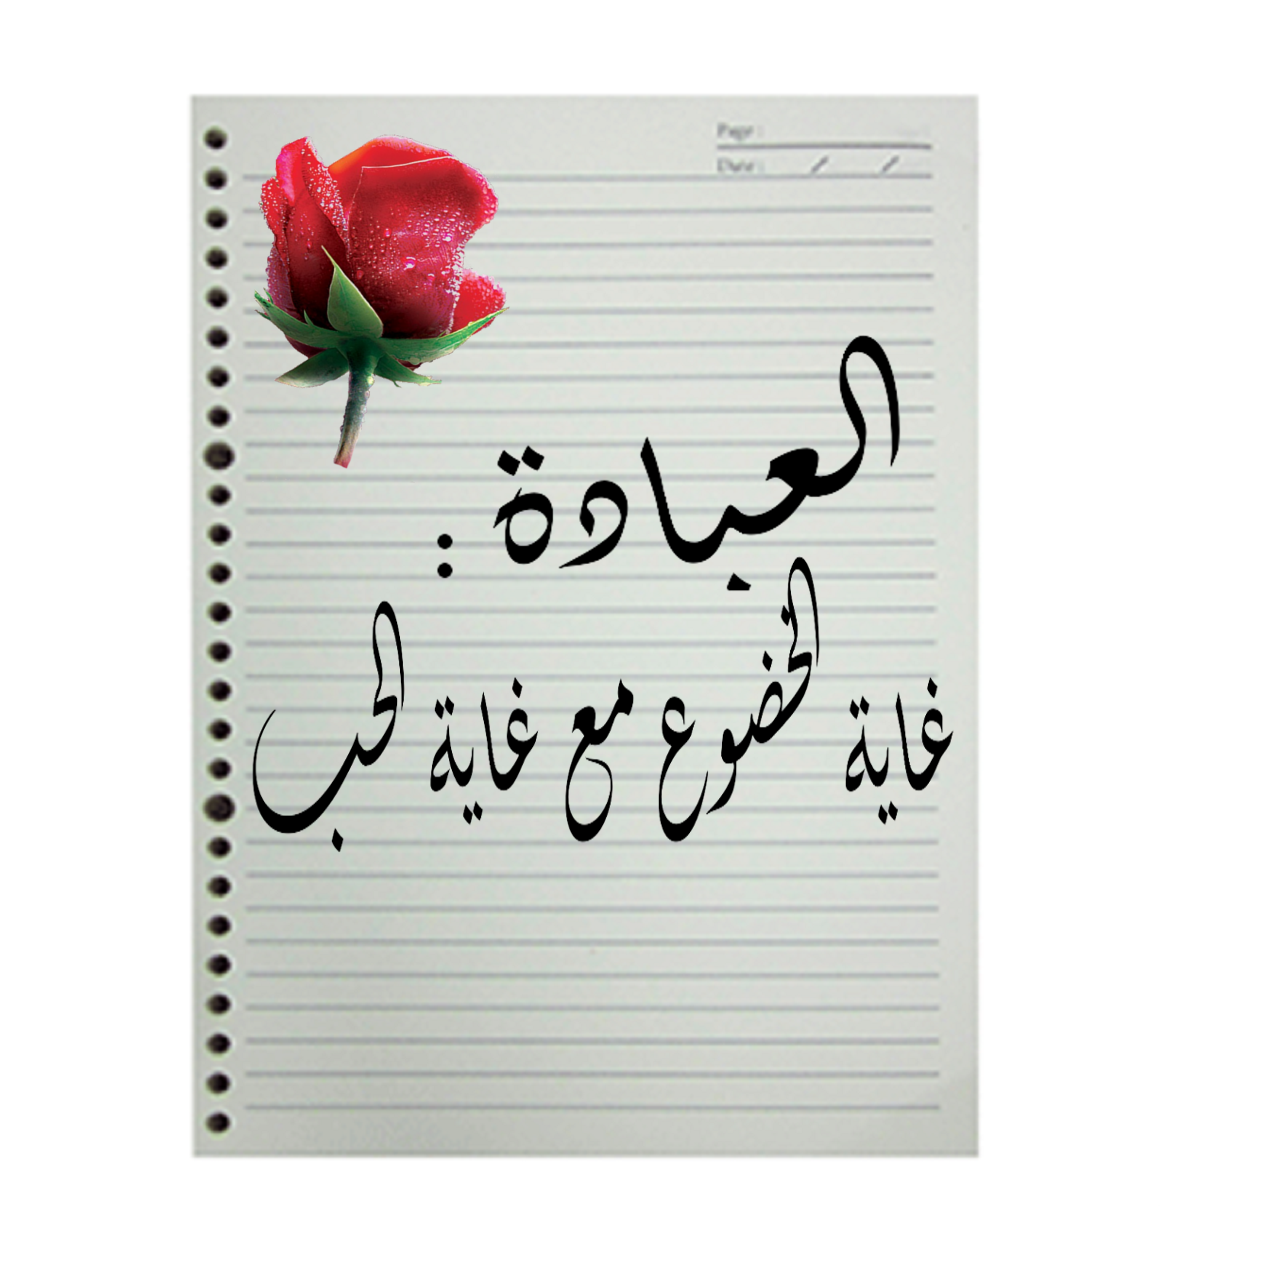 Page :
Date : / /
العبادة :
غاية الخضوع مع غاية الحب